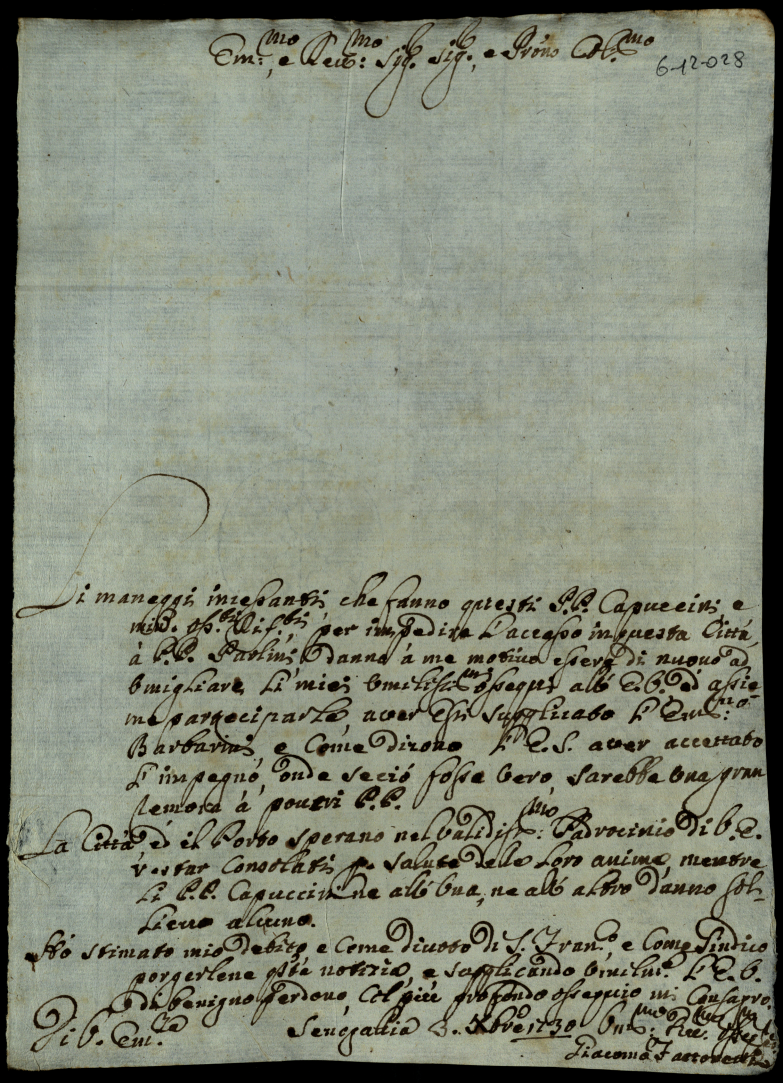 Em:mo, e Rev:mo Sig.r Sig.r, e Prōne Col.mo
6-12-028
Li maneggi incessanti che fanno questi P.P. Capuccini e
per impedire l'accesso in questa Città
à P.P. Paolini danno à me motivo essere di nuovo ad
umigliare li miei umiliss.mi ossequi all' E.V. ed assie-
me parteciparle aver essi supplicato l' Em:mo
Barbarini e come dicono l' E.S. aver accettato
l'impegno, onde se ciò fosse vero sarebbe una gran
remora à poveri P.P.
La Città ed il Porto sperano nel validiss:mo Padrocinio di V.E.
restar consolati p. salute delle loro anime, mentre
li P.P. Capuccini ne all' una, ne all' altro danno sol-
lievo alcuno.
Hò stimato mio debito e come divoto di S. Fran.co e come Sindico
porgerlene q.te notizie, e supplicando umilm.te l' E.V.
di benigno perdono, col più profondo ossequio mi consacro.
Di V. Em.za Senigallia 3. Xbre 1730 Um:mo
Giacomo